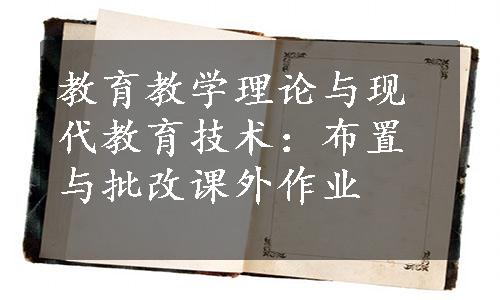 教育教学理论与现
代教育技术：布置
与批改课外作业